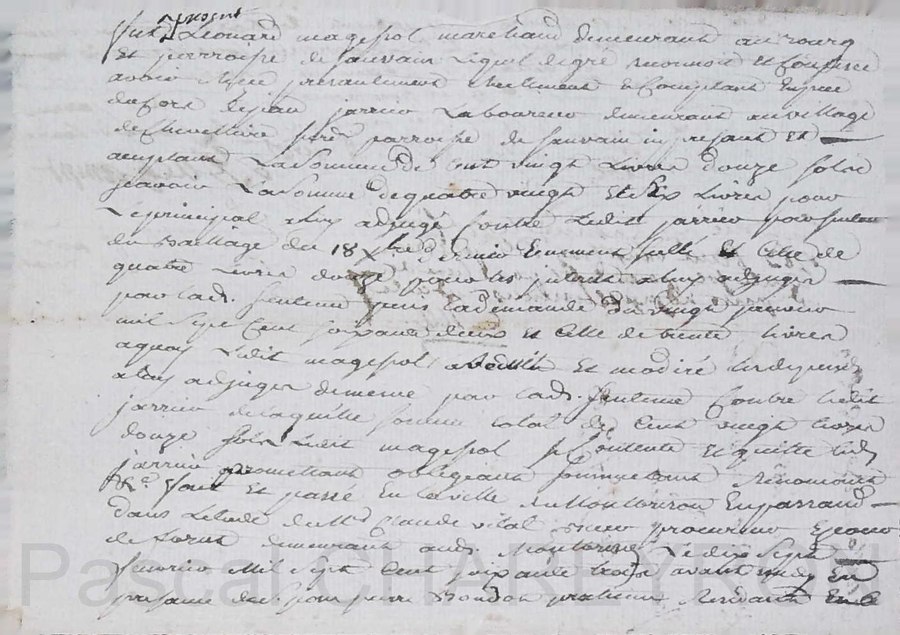 présent
fut Léonard magepol marchand demeurant au bourg
et parroisse de sauvain lequel de gré reconnoit et confesse
avoir reçeu presentement reellement et comptant en piece
de cors de jean jarrier laboureur demeurant au village
de parroisse de sauvain icy présant et
acceptant la somme de cent vingt livres douze sols
scavoir la somme de quatre vingt et six livres pour
le principal a luy adjugé contre ledit jarrier par sentence
du Bailliage du 18 xbre dernier et celle de
quatre livres douze pour les interets a luy adjuger
par lad. sentence depuis la demande du vingt janvier
mil sept cent soixante deux et celle de trente livres
a quoy ledit magepol a reduit et modéré les depends
a luy adjuger de meme par lad. sentence contre ledit
jarrier de laquelle somme total de cent vingt livres
douze sols ledit magepol se contente et quitte led.
jarrier promettant obligeant soumettant renonceant
&c. fait et passé en la ville de Montbrison
dans l'etude de Me Claude vital procureur
de forest demeurant aud. Montbrison le dix sept
fevrier mil sept cent soixante trois avant midy en
presance de pierre Bondon praticien
Pascal CHAREYRON